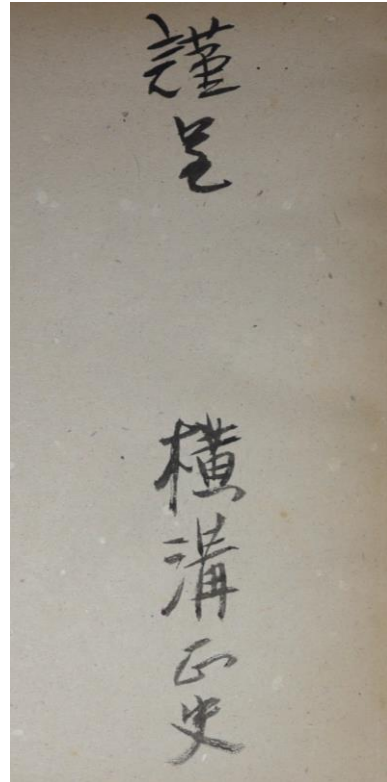 謹呈
横溝正史